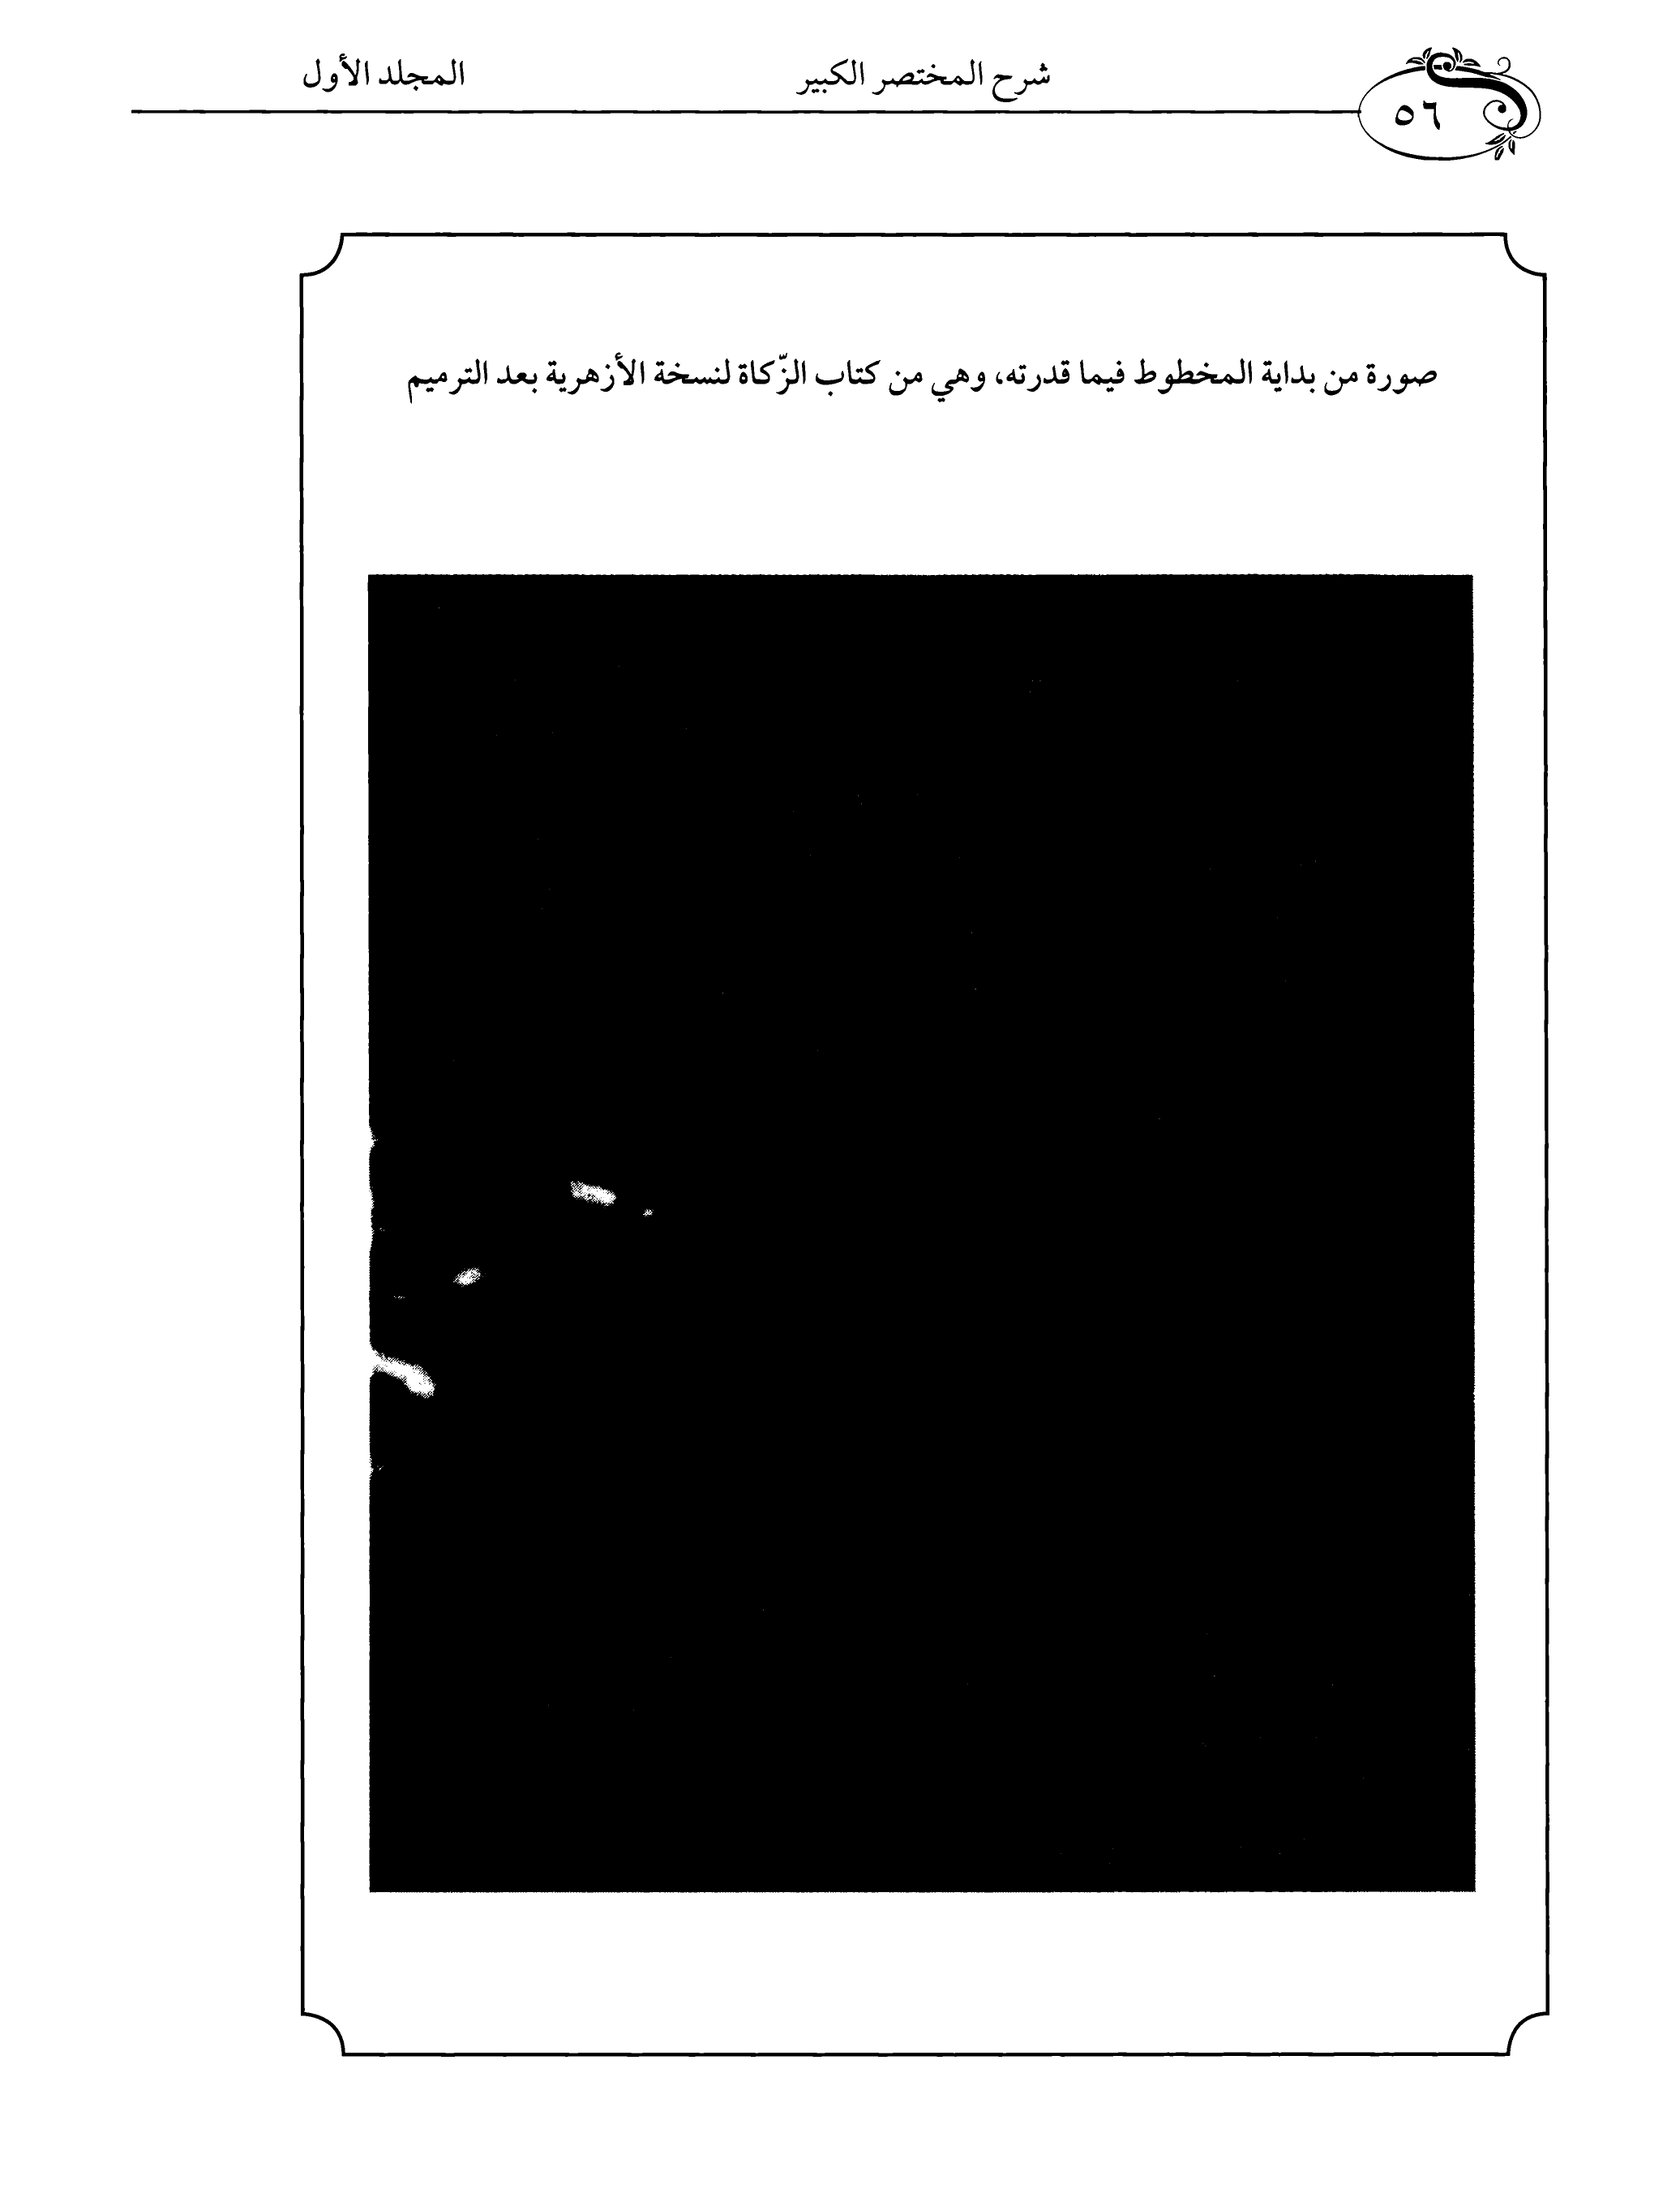 ٥٦ شرح المختصر الكبير المجلد الأول
صورة من بداية المخطوط فيما قدرته، وهي من كتاب الزّكاة لنسخة الأزهرية بعد الترميم